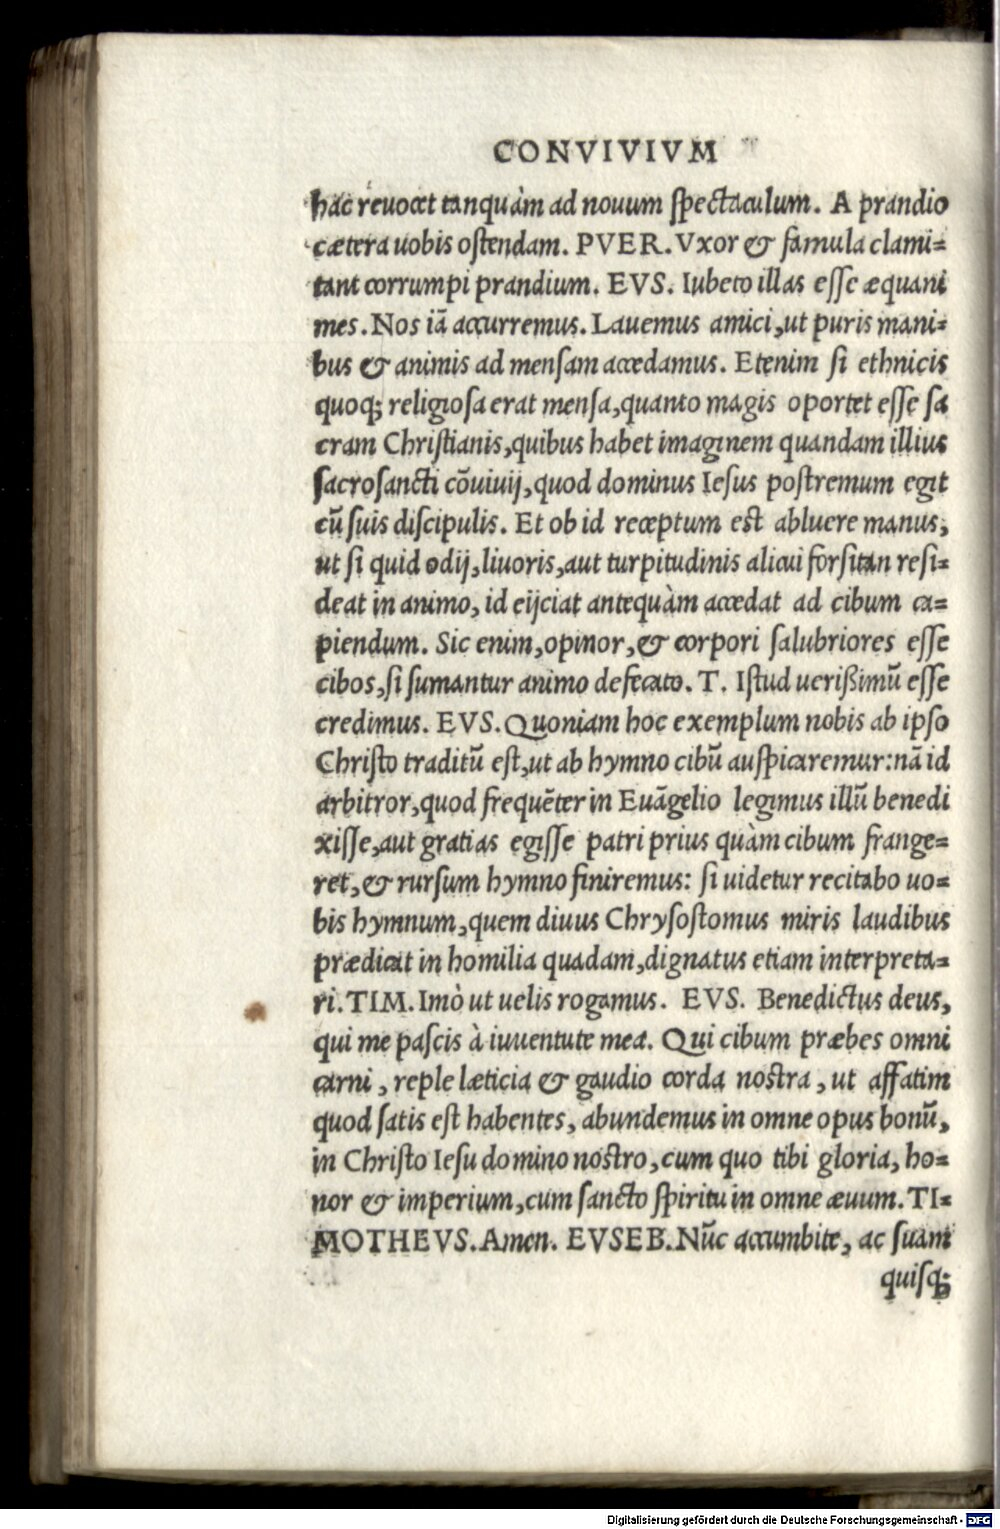 CONVIVIVM
hac reuocet tanquàm ad nouum spectaculum. A prandio
cætera uobis ostendam. PVER. Vxor & famula clami-
tant corrumpi prandium. EVS. Iubeto illas esse æquani
mes. Nos iã accurremus. Lauemus amici, ut puris mani-
bus & animis ad mensam accedamus. Etenim si ethnicis
quoq; religiosa erat mensa, quanto magis oportet esse sa
cram Christianis, quibus habet imaginem quandam illius
sacrosancti cõuiuij, quod dominus Iesus postremum egit
cũ suis discipulis. Et ob id receptum est abluere manus,
ut si quid odij, liuoris, aut turpitudinis alicui forsitan resi-
deat in animo, id eijciat antequàm accedat ad cibum ca-
piendum. Sic enim, opinor, & corpori salubriores esse
cibos, si sumantur animo defecato. T. Istud uerißimũ esse
credimus. EVS. Quoniam hoc exemplum nobis ab ipso
Christo traditũ est, ut ab hymno cibũ auspicaremur: nã id
arbitror, quod frequẽter in Euãgelio legimus illũ benedi
xisse, aut gratias egisse patri prius quàm cibum frange-
ret, & rursum hymno finiremus: si uidetur recitabo uo-
bis hymnum, quem diuus Chrysostomus miris laudibus
prædicat in homilia quadam, dignatus etiam interpreta-
ri. TIM. Imò ut uelis rogamus. EVS. Benedictus deus,
qui me pascis à iuuentute mea. Qui cibum præbes omni
carni, reple læticia & gaudio corda nostra, ut affatim
quod satis est habentes, abundemus in omne opus bonũ,
in Christo Iesu domino nostro, cum quo tibi gloria, ho-
nor & imperium, cum sancto spiritu in omne æuum. TI-
MOTHEVS. Amen. EVSEB. Nũc accumbite, ac suam
quisq;
Digitalisierung gefördert durch die Deutsche Forschungsgemeinschaft - DFG